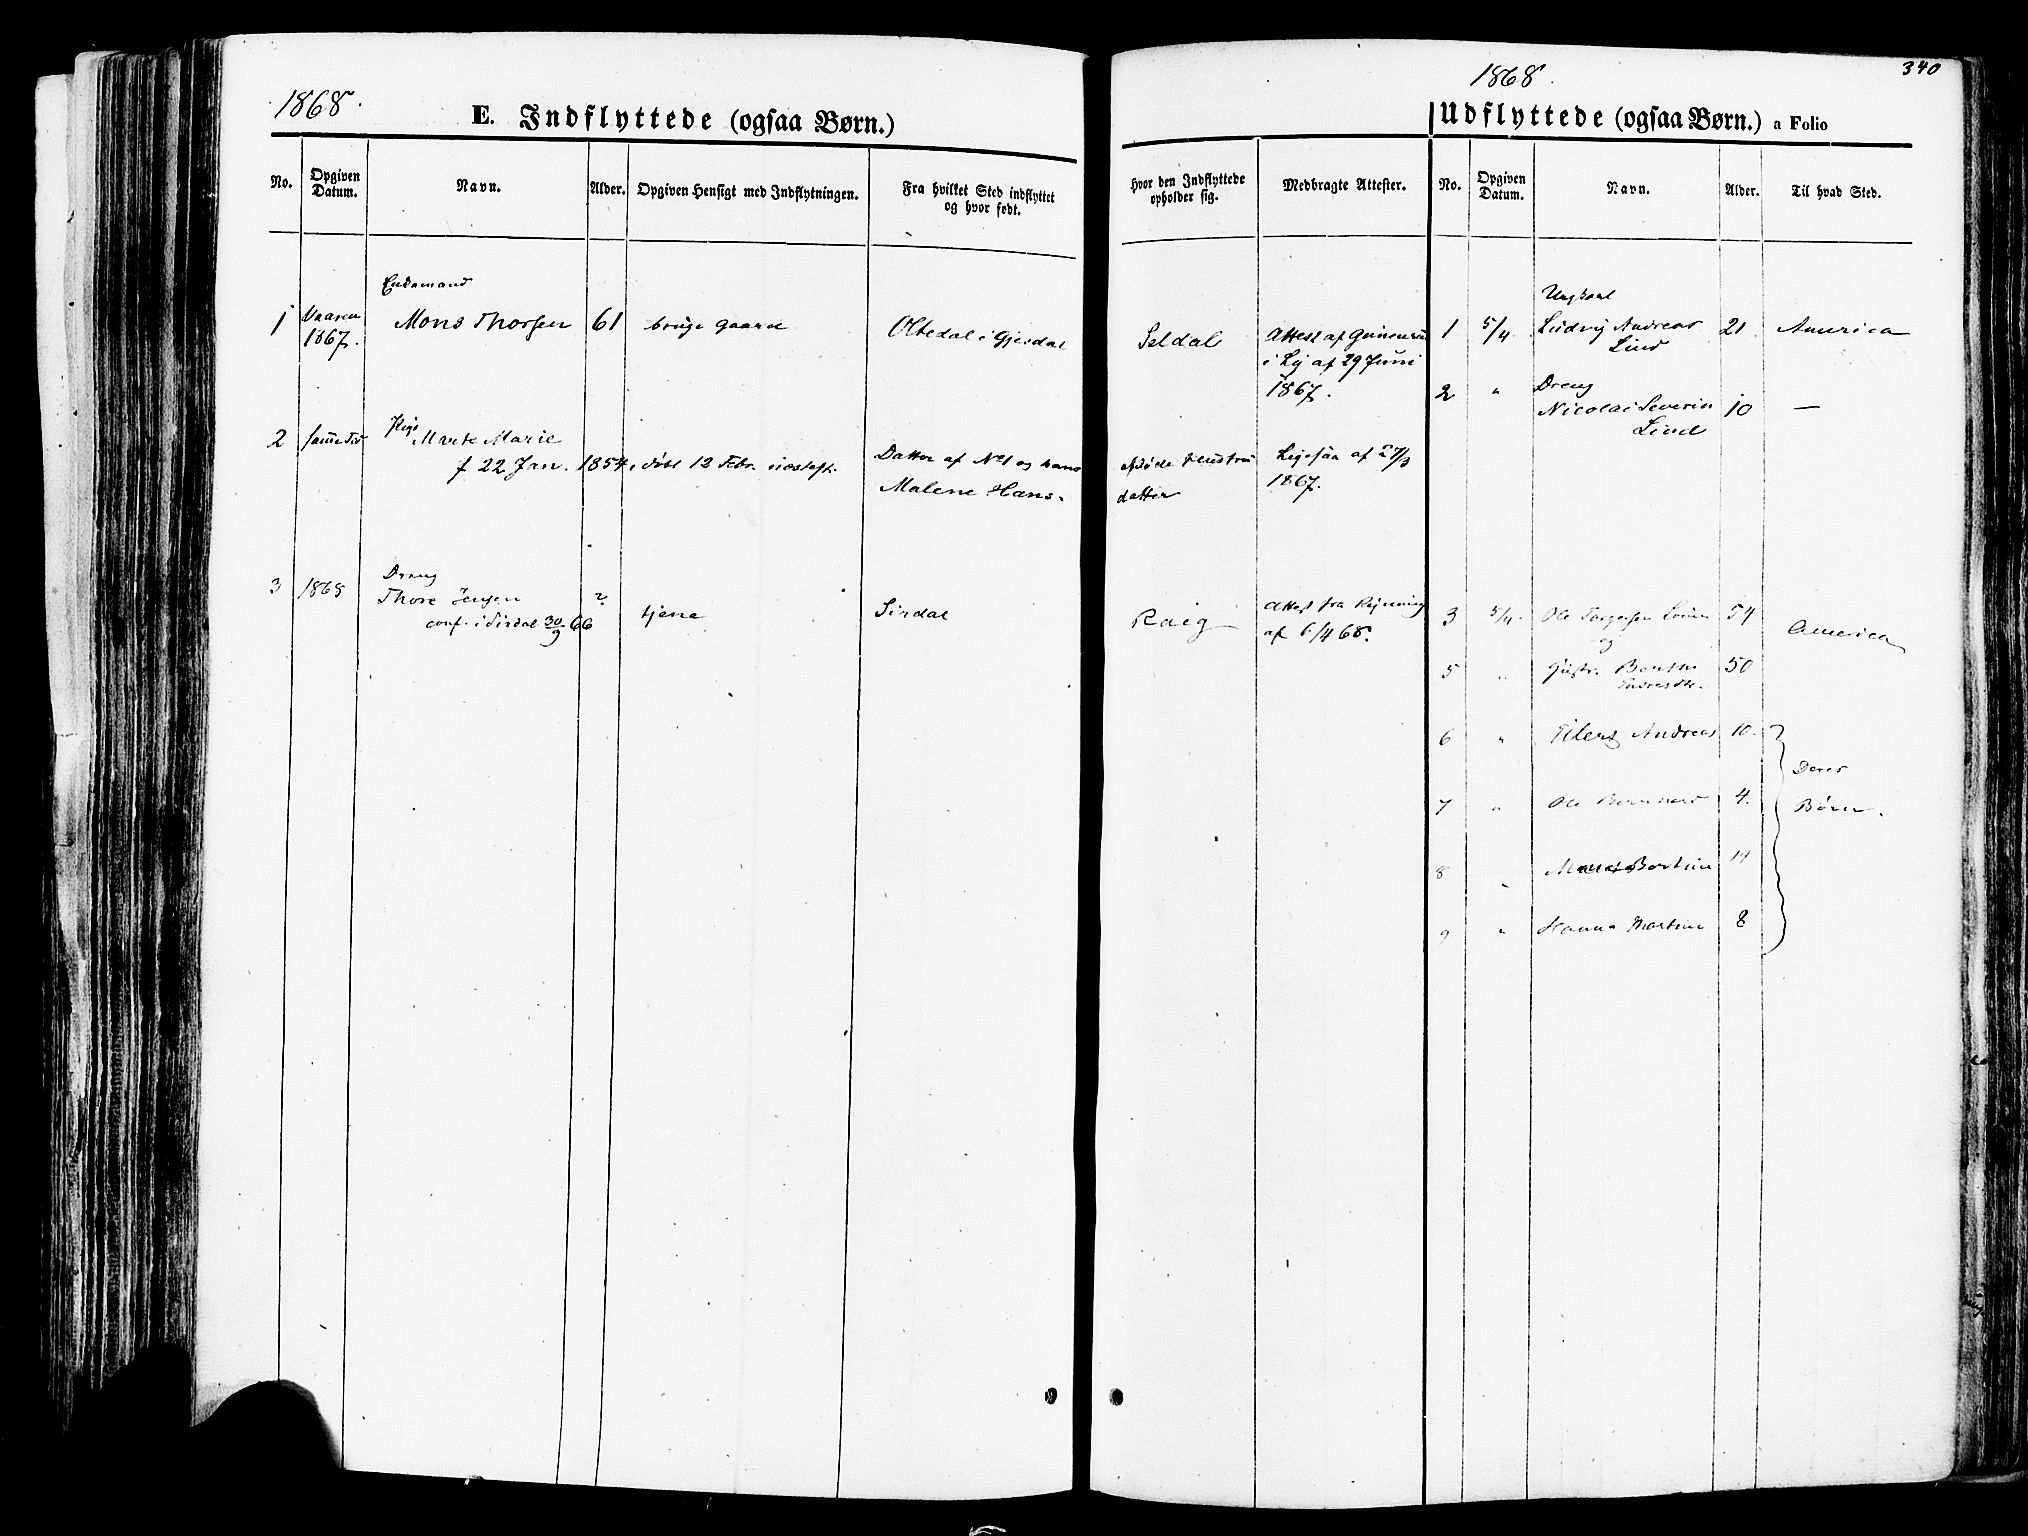 1868.
E. Indflyttede (ogsaa Børn.)
No.
Opgiven Datum.
Navn.
Alder.
Opgiven Hensigt med Indflytningen.
Fra hvilket Sted indflyttet og hvor født.
1
Vaaren 1867.
Enkemand
Mons Thorsen
61
bruge gaard
Oltedal i Gjesdal
2
samme Tid
Pige
Marte Marie
f 22 Jan. 1854, døbt 12 Febr. næsteft.
Datter af No 1 og hans
Malene Hans-
3
1868
Dreng
Thore Jensen
conf. i Sirdal 30/9 66
?
tjene
Sirdal
1868.
340
Udflyttede (ogsaa Børn.) a Folio
Hvor den Indflyttede opholder sig.
Medbragte Attester.
No.
Opgiven Datum.
Navn.
Alder.
Til hvad Sted.
Seldal
Attest af
i Lye af 29 Juni
1867.
afdøde Hustru
datter
Ligesaa af 27/3
1867.
Raeg
Attest fra
af 6/4 68.
1
5/4
Ungkarl
Ludvig Andreas
Lind
21
America
2
"
Dreng
Nicolai Severin
Lind
10
—
3
5/4
Ole Torgersen
54
America
og
5
"
Hustr.
Endresdtr.
50
6
"
Eilert Andreas
10.
7
"
Ole
4.
Deres
Børn.
8
"
Bertine
14
9
"
Hanna Martine
8